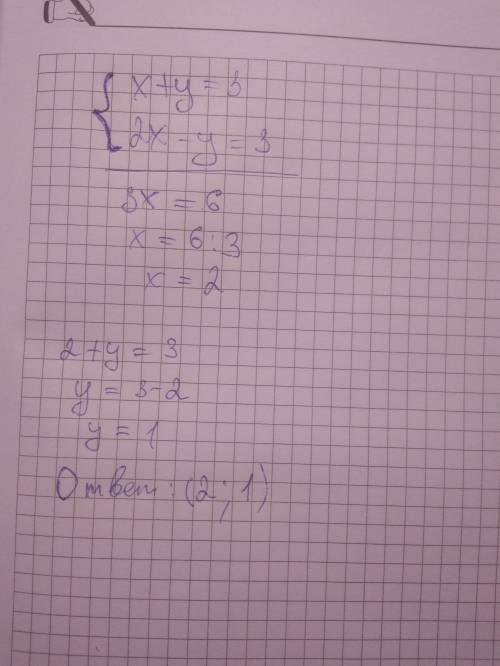 x+y=3
2x-y=3
3x=6
x=6:3
x=2
2+y=3
y=3-2
y=1
Ответ: (2; 1)